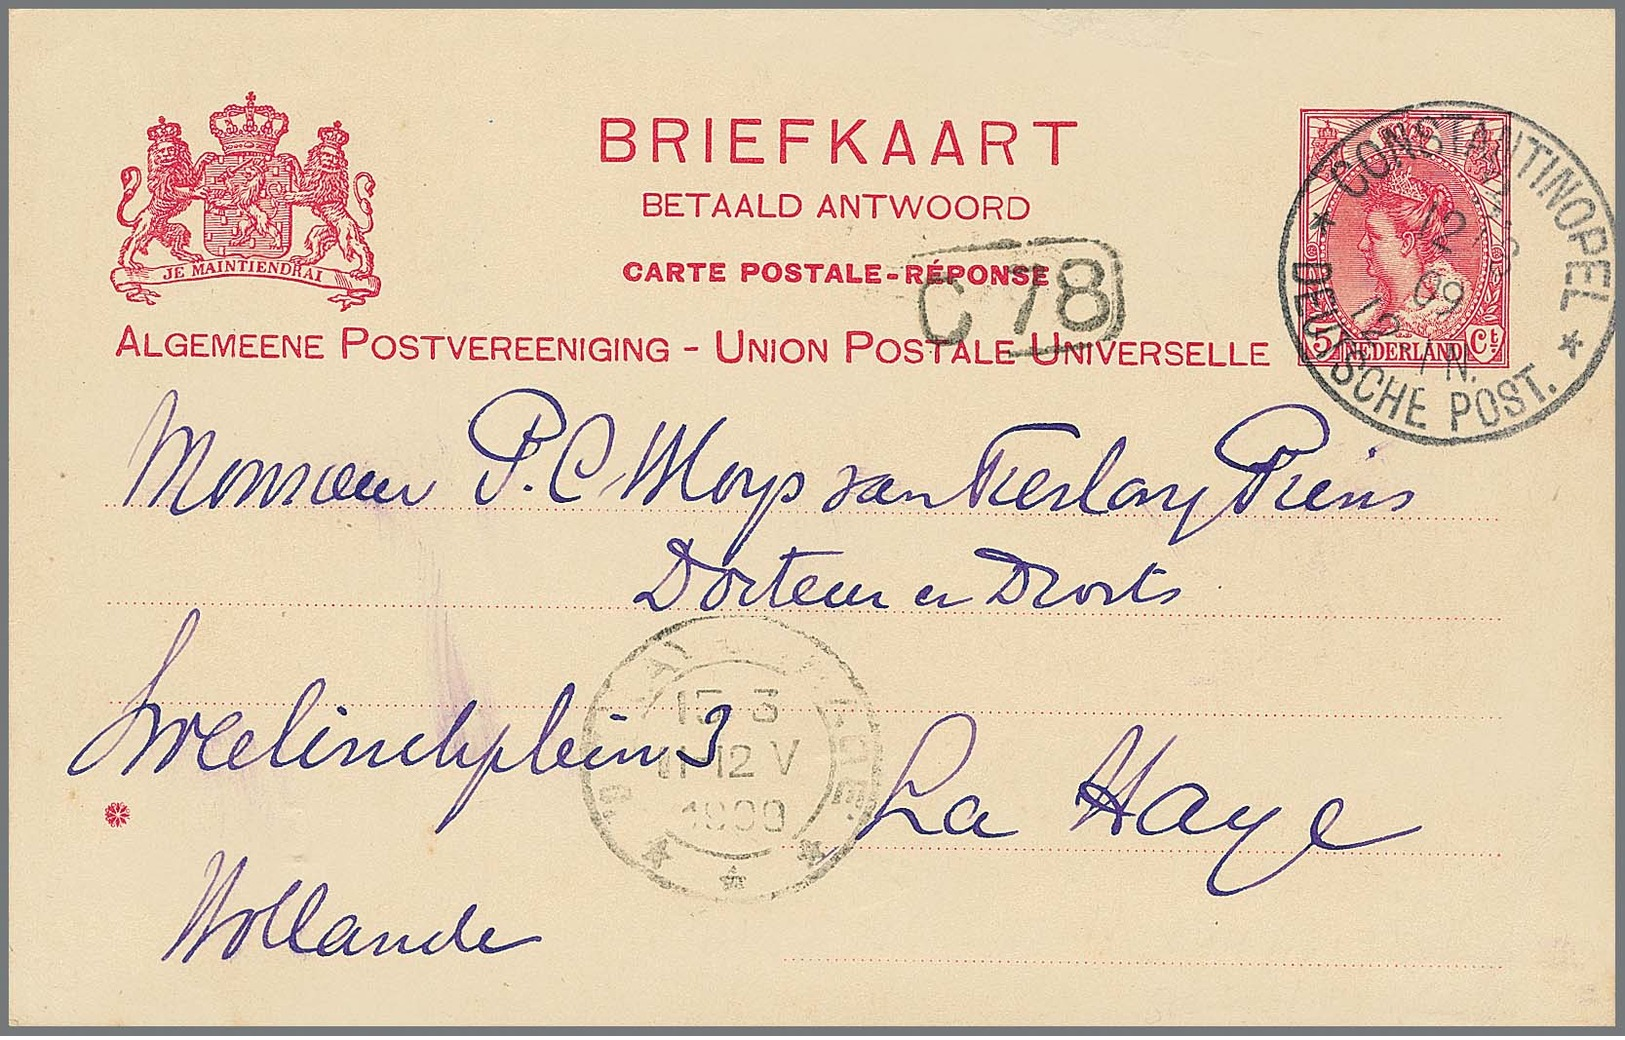 BRIEFKAART
BETAALD ANTWOORD
CARTE POSTALE-RÉPONSE
ALGEMEENE POSTVEREENIGING - UNION POSTALE UNIVERSELLE
JE MAINTIENDRAI
C 78
5 NEDERLAND Ct.
* CONSTANTINOPEL *
12 3
09
12-1 N.
DEUTSCHE POST.
Monsieur P. C. Moys van Kerlony Prins
Docteur en Droits
Sweelinckplein 3
La Haye
Hollande
15 3
11-12 V
1909